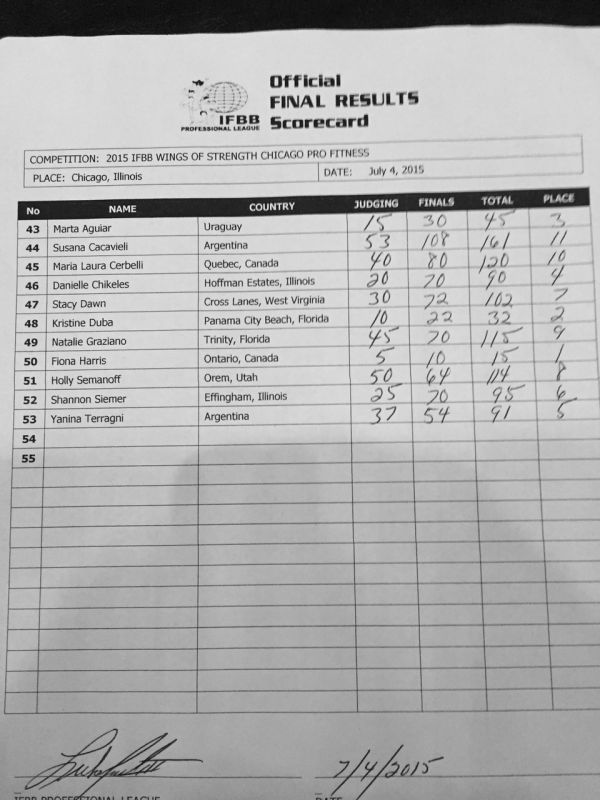 Official
FINAL RESULTS
IFBB Scorecard
PROFESSIONAL LEAGUE
COMPETITION: 2015 IFBB WINGS OF STRENGTH CHICAGO PRO FITNESS
PLACE: Chicago, Illinois DATE: July 4, 2015
No NAME COUNTRY JUDGING FINALS TOTAL PLACE
43 Marta Aguiar Uraguay 15 30 45 3
44 Susana Cacavieli Argentina 53 108 161 11
45 Maria Laura Cerbelli Quebec, Canada 40 80 120 10
46 Danielle Chikeles Hoffman Estates, Illinois 20 70 90 4
47 Stacy Dawn Cross Lanes, West Virginia 30 72 102 7
48 Kristine Duba Panama City Beach, Florida 10 22 32 2
49 Natalie Graziano Trinity, Florida 45 70 115 9
50 Fiona Harris Ontario, Canada 5 10 15 1
51 Holly Semanoff Orem, Utah 50 64 114 8
52 Shannon Siemer Effingham, Illinois 25 70 95 6
53 Yanina Terragni Argentina 37 54 91 5
54
55
7/4/2015
IFBB PROFESSIONAL LEAGUE DATE